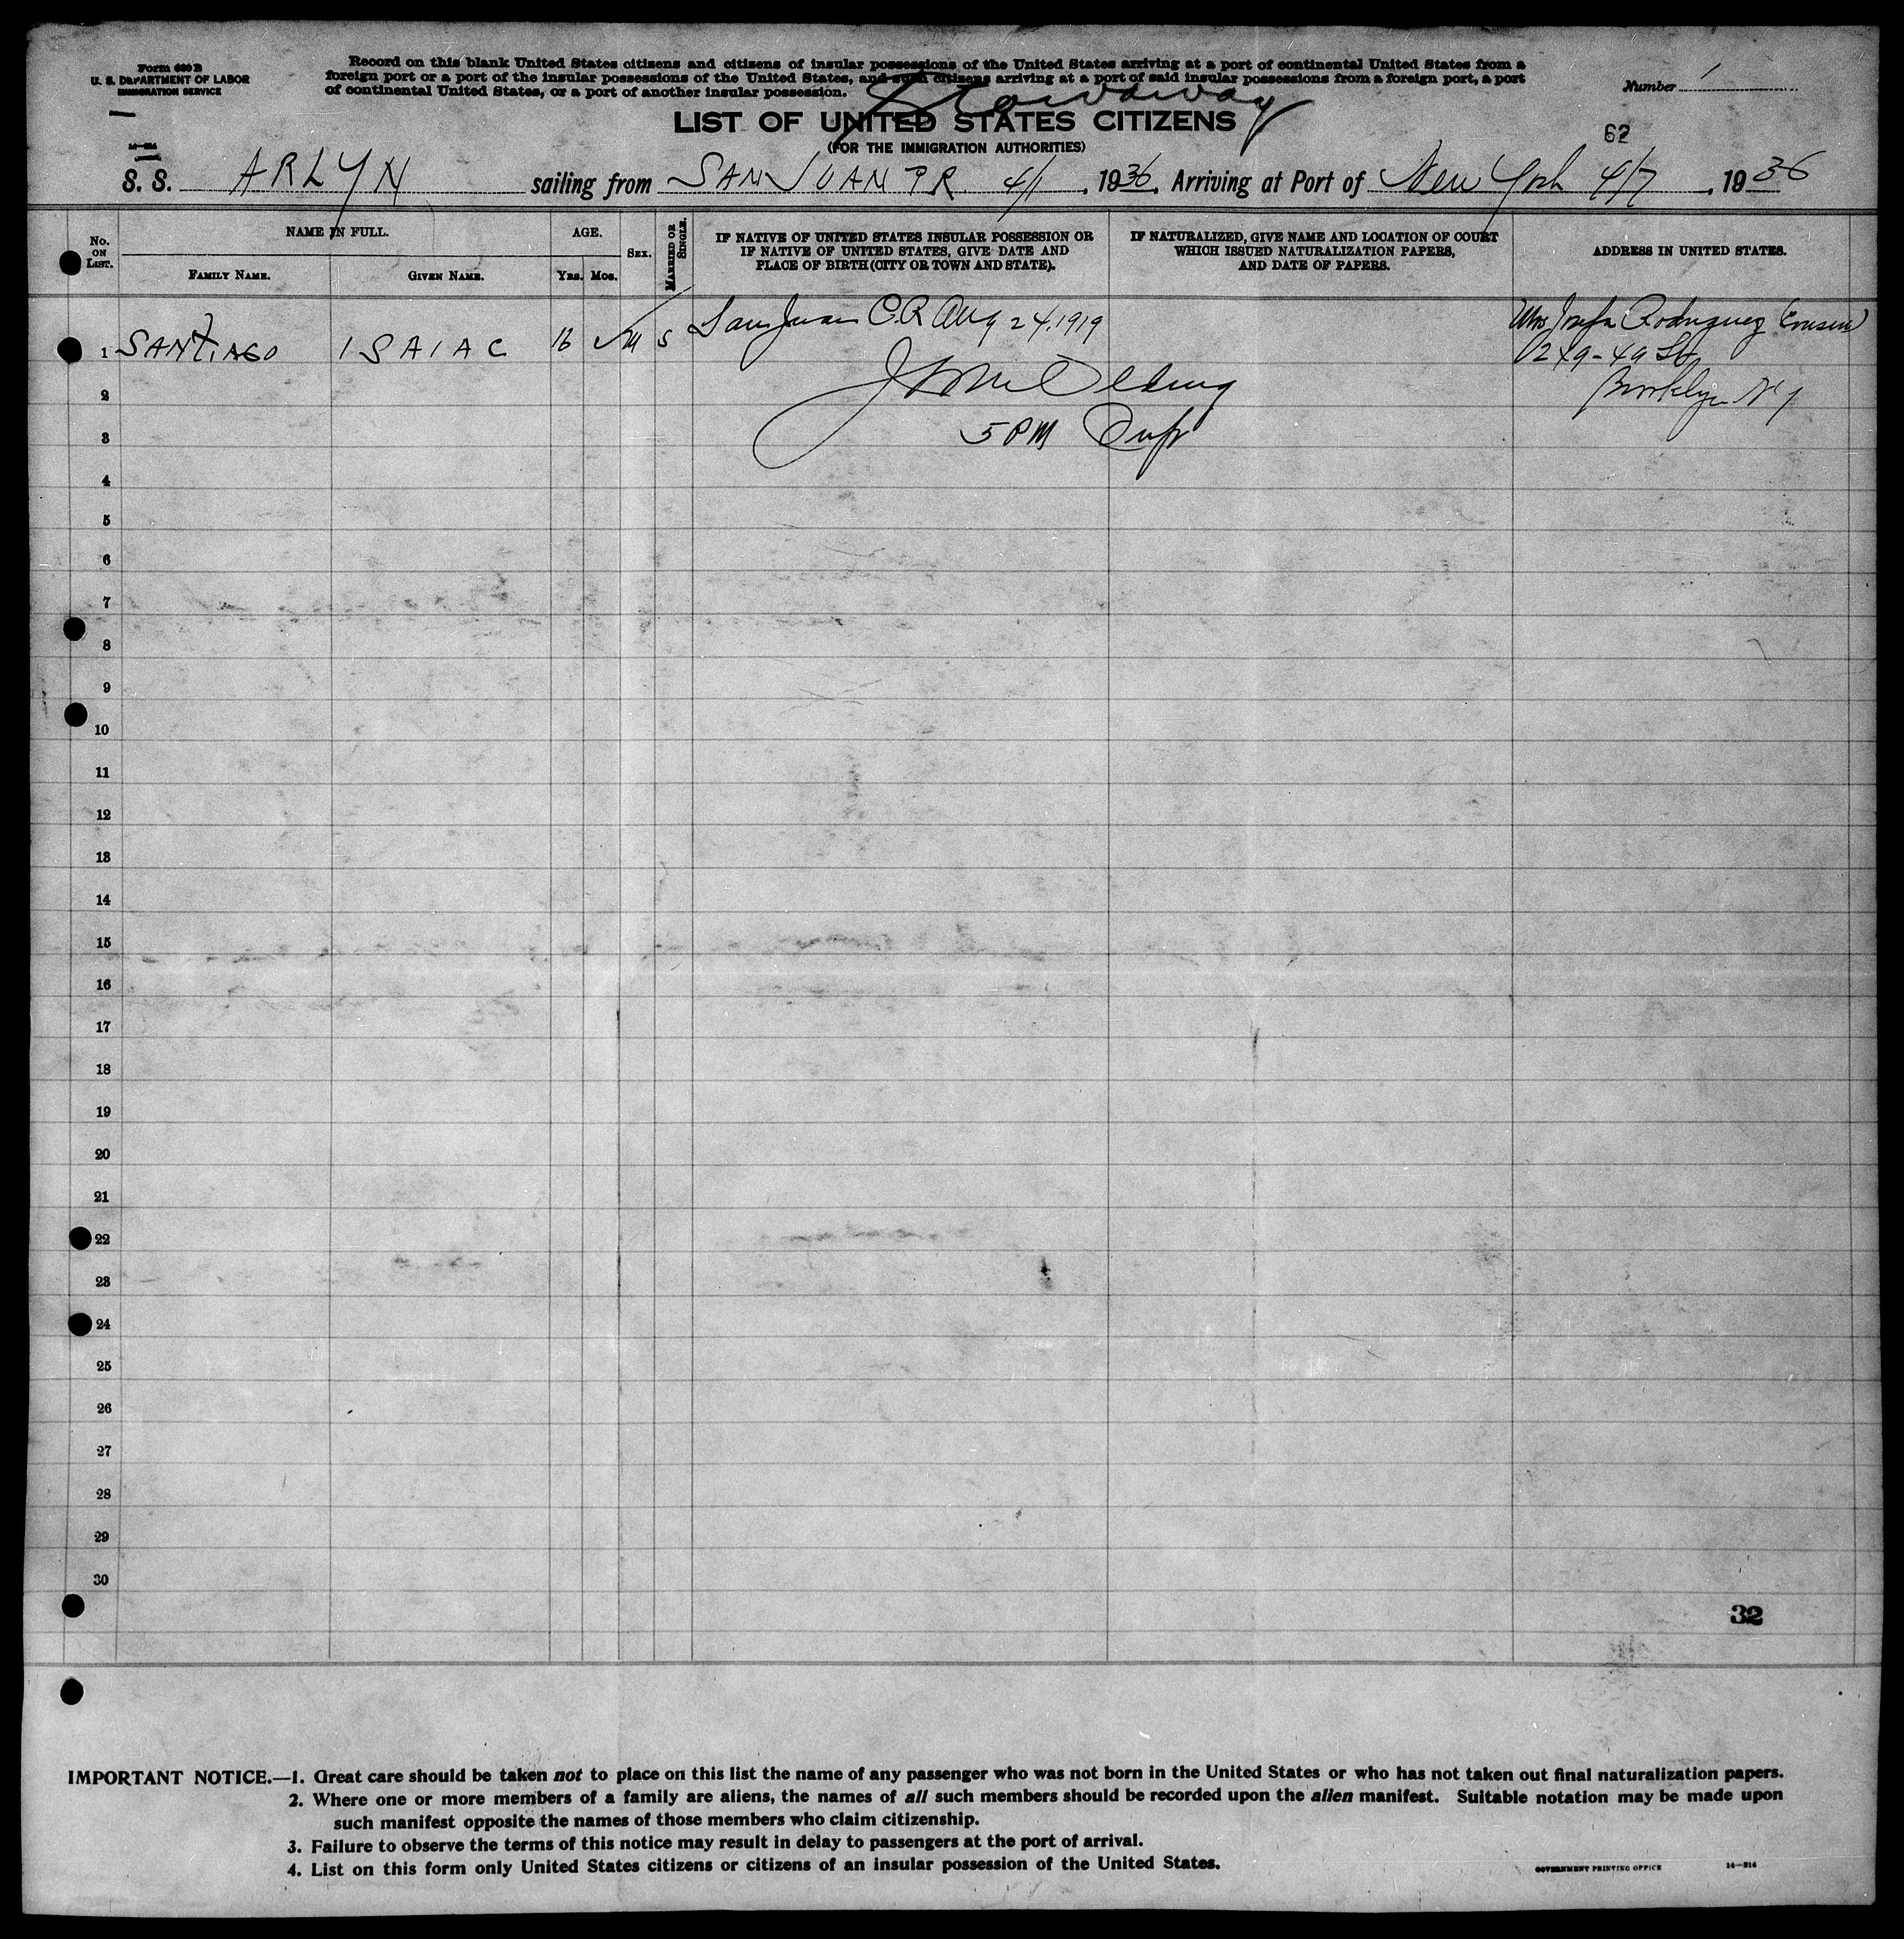 Form 630 B
U. S. DEPARTMENT OF LABOR
IMMIGRATION SERVICE
Record on this blank United States citizens and citizens of insular possessions of the United States arriving at a port of continental United States from a
foreign port or a port of the insular possessions of the United States, and such citizens arriving at a port of said insular possessions from a foreign port, a port
of continental United States, or a port of another insular possession.
Number 1
Stowaway
LIST OF UNITED STATES CITIZENS
(FOR THE IMMIGRATION AUTHORITIES)
62
S. S. ARLYN sailing from SAN JUAN PR 4/1, 1936, Arriving at Port of New York 4/7, 1936
No. ON LIST.
NAME IN FULL.
FAMILY NAME.
GIVEN NAME.
AGE.
YRS. MOS.
SEX.
MARRIED OR SINGLE.
IF NATIVE OF UNITED STATES INSULAR POSSESSION OR
IF NATIVE OF UNITED STATES, GIVE DATE AND
PLACE OF BIRTH (CITY OR TOWN AND STATE).
IF NATURALIZED, GIVE NAME AND LOCATION OF COURT
WHICH ISSUED NATURALIZATION PAPERS,
AND DATE OF PAPERS.
ADDRESS IN UNITED STATES.
1 SANTIAGO ISAIAC 16 M S San Juan P.R Aug 24, 1919 Mrs Josefa Rodriguez (Cousin)
49 St
Brooklyn NY
2
3 5 PM
4
5
6
7
8
9
10
11
12
13
14
15
16
17
18
19
20
21
22
23
24
25
26
27
28
29
30
32
IMPORTANT NOTICE.—1. Great care should be taken not to place on this list the name of any passenger who was not born in the United States or who has not taken out final naturalization papers.
2. Where one or more members of a family are aliens, the names of all such members should be recorded upon the alien manifest. Suitable notation may be made upon
such manifest opposite the names of those members who claim citizenship.
3. Failure to observe the terms of this notice may result in delay to passengers at the port of arrival.
4. List on this form only United States citizens or citizens of an insular possession of the United States.
GOVERNMENT PRINTING OFFICE 14—314